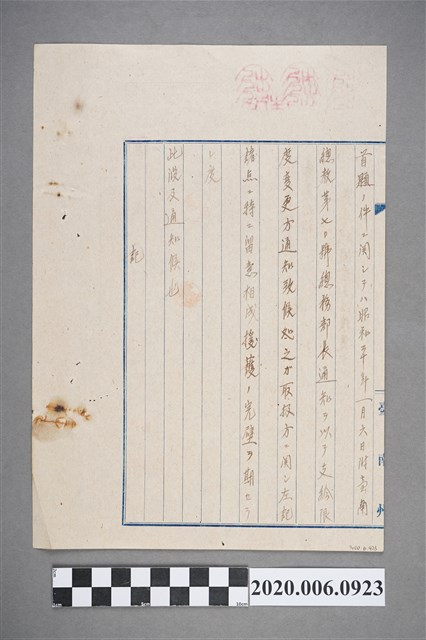 首題ノ件ニ関シテハ昭和二十年一月六日附臺南
總教第七〇號總務部長通知ヲ以テ支給限
度変更方通知致候処之ガ取扱方ニ関シ左記
諸点ニ特ニ留意相成援護ノ完璧ヲ期セラ
レ度
此段及通知候也
記
臺南州
2020.006.0923